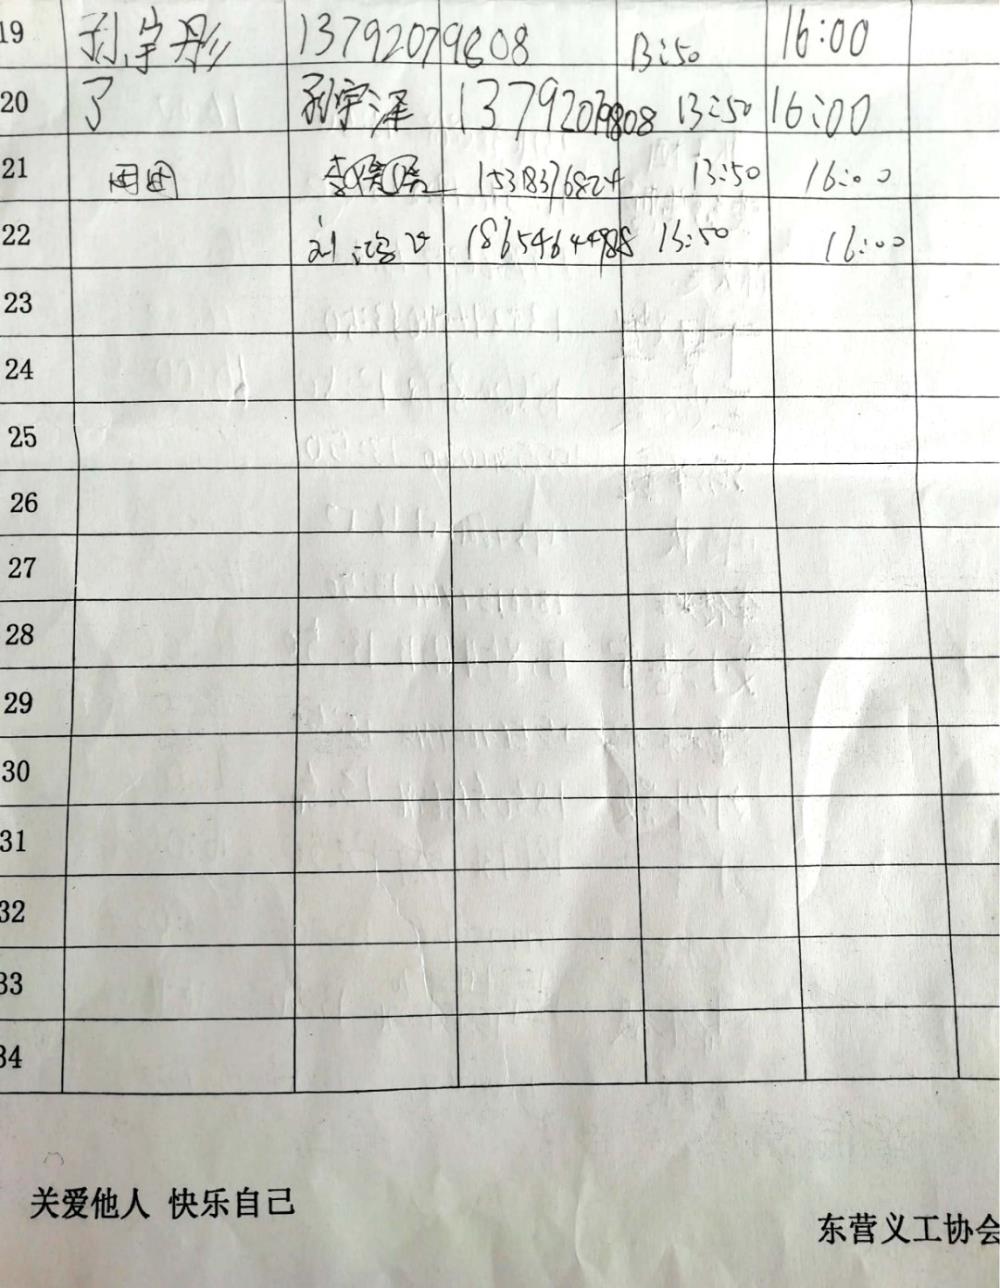 19 孙宇彤 13792079808 13:50 16:00
20 了 孙宇泽 13792079808 13:50 16:00
21 田田 李媛媛 15318376824 13:50 16:00
22 刘 18654644988 13:50 16:00
23
24
25
26
27
28
29
30
31
32
33
34
关爱他人 快乐自己
东营义工协会